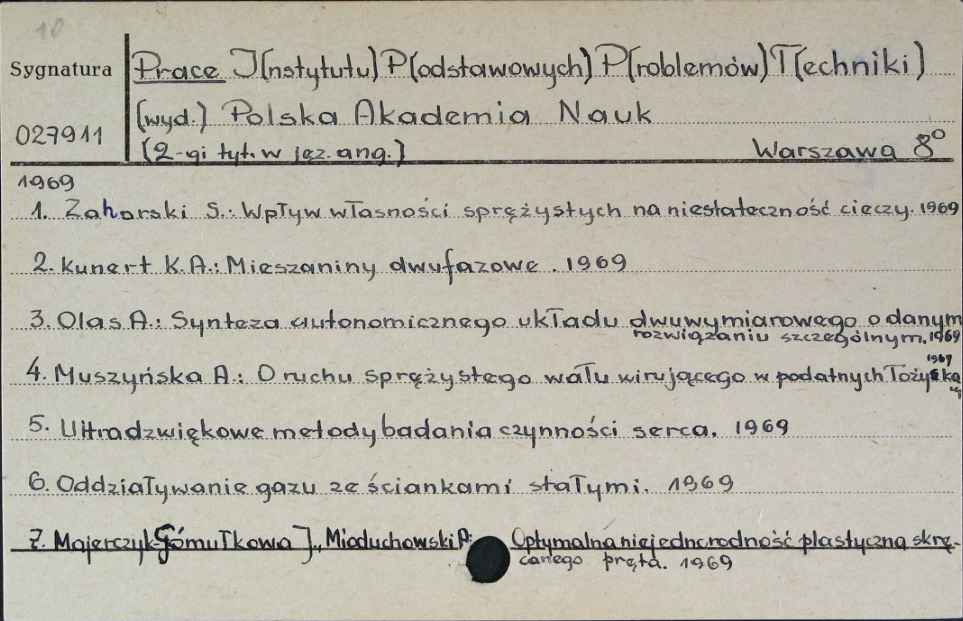 10
Sygnatura
Prace I(nstytutu) P(odstawowych) P(roblemów) T(echniki)
(wyd.) Polska Akademia Nauk
027911
(2-gi tyt. w jęz. ang.) Warszawa 8°
1969
1. Zahorski S.: Wpływ własności sprężystych na niestateczność cieczy. 1969
2. Kunert K.A.: Mieszaniny dwufazowe. 1969
3. Olas A.: Synteza autonomicznego układu dwuwymiarowego o danym
rozwiązaniu szczególnym. 1969
1969
4. Muszyńska A.: O ruchu sprężystego wału wirującego w podatnych łożyska
5. Ultradzwiękowe metody badania czynności serca. 1969
6. Oddziaływanie gazu ze ściankami stałymi. 1969
7. Majerczyk-Gómułkowa J., Mioduchowski A.: Optymalna niejednorodność plastyczna skrę-
canego pręta. 1969